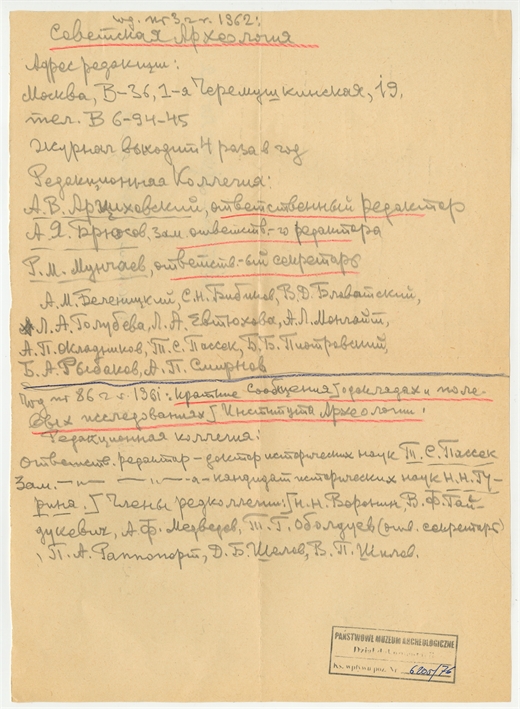 wg. nr 3, z r. 1962:
Советская Археология
Адрес редакции:
Москва, В-36, 1-я Черемушкинская, 19.
тел. В 6-94-45
Журнал выходит 4 раза в год
Редакционная Коллегия:
А.В. Арциховский, ответственный редактор
А.Я. Брюсов, зам ответств-го редактора
Р.М. Мунчаев, ответств-ый секретарь
А.М. Беленицкий, С.Н. Бибиков, В.Д. Блаватский,
Л.А. Голубева, Л.А. Евтюхова, А.Л. Монгайт,
А.П. Окладников, Т.С. Пассек, Б.Б. Пиотровский,
Б.А. Рыбаков, А.П. Смирнов
wg nr 86 z r. 1961: Краткие Сообщения о докладах и поле-
вых исследованиях Института Археологии.
Редакционная коллегия:
ответств. редактор – доктор исторических наук Т.С. Пассек
Зам. –"– –"– -а – кандидат исторических наук Н.Н. Гу-
рина. Члены редколлегии: Н.Н. Воронин, В.Ф. Гай-
дукевич, А.Ф. Медведев, Т.Г. Оболдуева (отв. секретарь)
, П.А. Раппопорт, Д.Б. Шелов, В.П. Шилов.
PAŃSTWOWE MUZEUM ARCHEOLOGICZNE
Dział
Ks. wpływu poz. Nr 6205/76